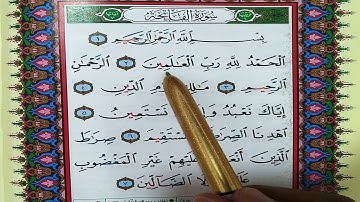 سُورَةُ الفَاتِحَةِ
بِسْمِ اللَّهِ الرَّحْمَٰنِ الرَّحِيمِ ١
الْحَمْدُ لِلَّهِ رَبِّ الْعَالَمِينَ ٢ الرَّحْمَٰنِ
الرَّحِيمِ ٣ الدِّينِ ٤
إِيَّاكَ نَعْبُدُ نَسْتَعِينُ ٥
اهْدِنَا الصِّرَاطَ ٦ صِرَاطَ
الَّذِينَ عَلَيْهِمْ غَيْرِ الْمَغْضُوبِ
الضَّالِّينَ ٧